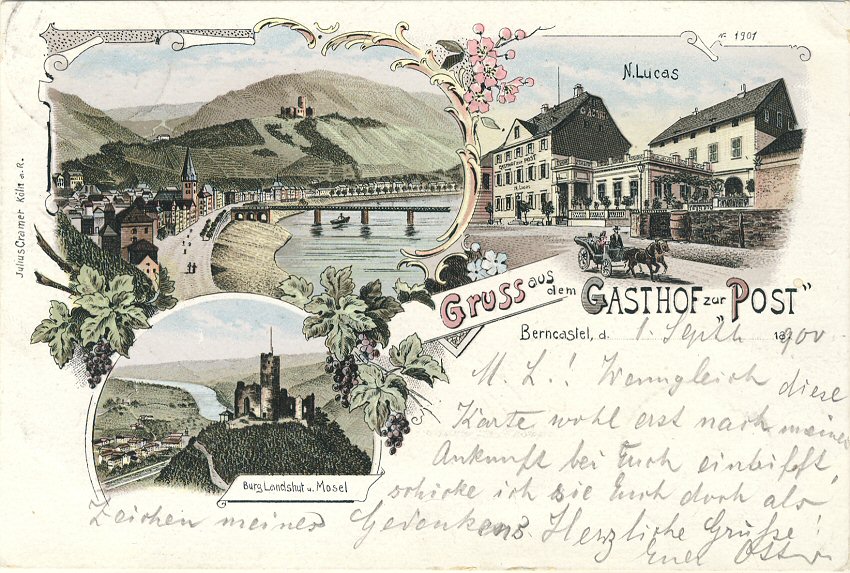 No 1901
N. Lucas
GASTHOF ZUR POST
N. Lucas
Julius Cramer Köln a. R.
Gruss aus dem GASTHOF zur „POST"
Berncastel, d. 1. Septb 1900
M. L.! Wenngleich diese
Karte wohl erst nach meiner
Ankunft bei Euch eintrifft,
schicke ich sie Euch doch als
Zeichen meines Gedenkens. Herzliche Grüße!
Euer
Burg Landshut u. Mosel